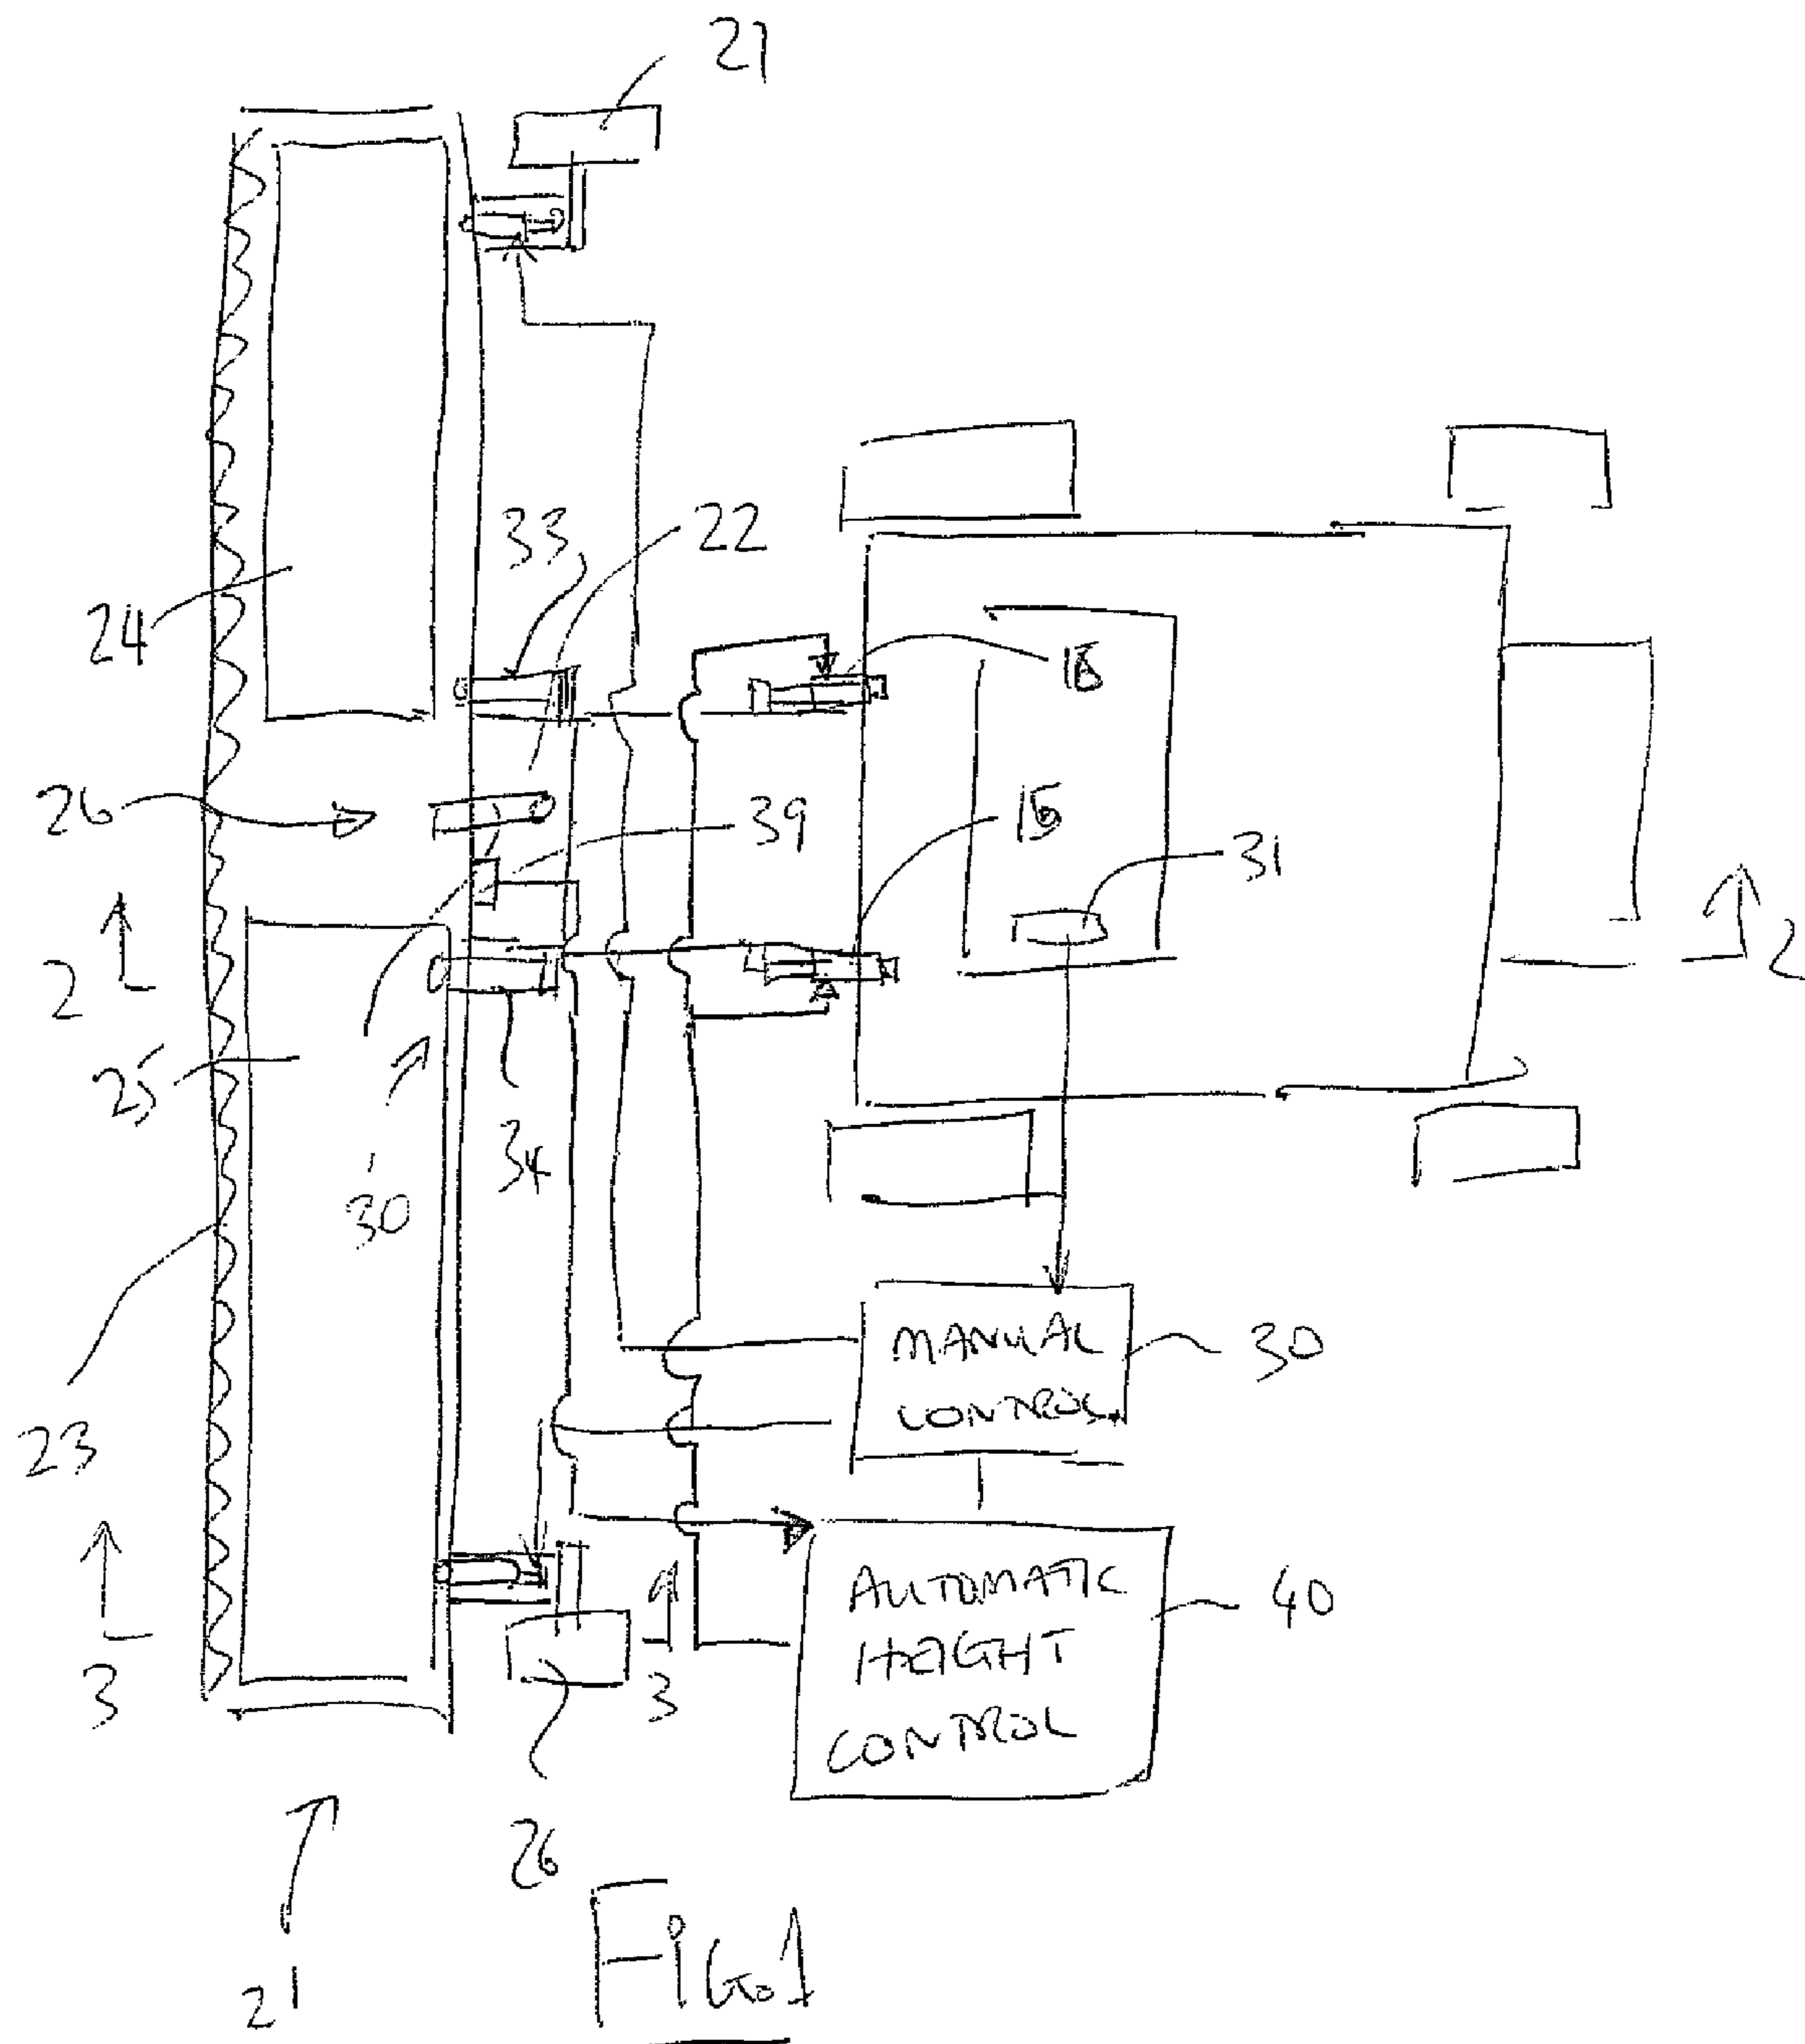 21
33
22
24
18
26
39
16
31
2
2
25
34
30
MANUAL
CONTROL
30
23
AUTOMATIC
HEIGHT
CONTROL
40
3
3
26
21
FIG. 1